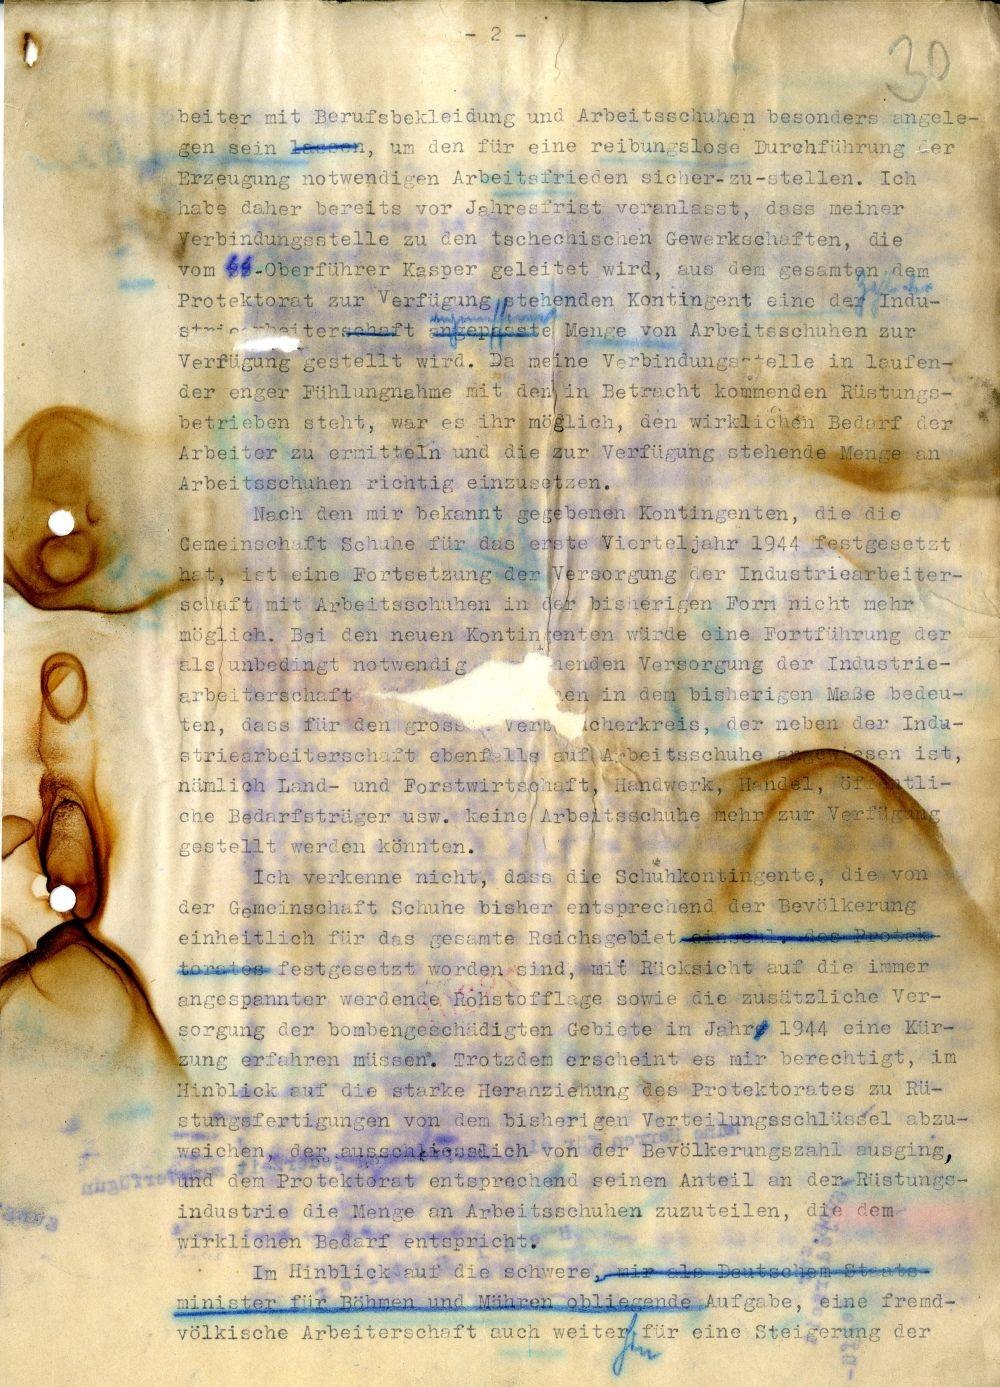 - 2 -
30
beiter mit Berufsbekleidung und Arbeitsschuhen besonders angele-
gen sein lassen, um den für eine reibungslose Durchführung der
Erzeugung notwendigen Arbeitsfrieden sicher-zu-stellen. Ich
habe daher bereits vor Jahresfrist veranlasst, dass meiner
Verbindungsstelle zu den tschechischen Gewerkschaften, die
vom SS-Oberführer Kasper geleitet wird, aus dem gesamten dem
Protektorat zur Verfügung stehenden Kontingent eine der Indu-
striearbeiterschaft angepasste Menge von Arbeitsschuhen zur
Verfügung gestellt wird. Da meine Verbindungsstelle in laufen-
der enger Fühlungnahme mit den in Betracht kommenden Rüstungs-
betrieben steht, war es ihr möglich, den wirklichen Bedarf der
Arbeiter zu ermitteln und die zur Verfügung stehende Menge an
Arbeitsschuhen richtig einzusetzen.
Nach den mir bekannt gegebenen Kontingenten, die die
Gemeinschaft Schuhe für das erste Vierteljahr 1944 festgesetzt
hat, ist eine Fortsetzung der Versorgung der Industriearbeiter-
schaft mit Arbeitsschuhen in der bisherigen Form nicht mehr
möglich. Bei den neuen Kontingenten würde eine Fortführung der
als unbedingt notwendig henden Versorgung der Industrie-
arbeiterschaft en in dem bisherigen Maße bedeu-
ten, dass für den gross Verb cherkreis, der neben der Indu-
striearbeiterschaft ebenfalls auf Arbeitsschuhe angewiesen ist,
nämlich Land- und Forstwirtschaft, Handwerk, Handel, öffentli-
che Bedarfsträger usw. keine Arbeitsschuhe mehr zur Verfügung
gestellt werden könnten.
Ich verkenne nicht, dass die Schuhkontingente, die von
der Gemeinschaft Schuhe bisher entsprechend der Bevölkerung
einheitlich für das gesamte Reichsgebiet einschl. des Protek-
torates festgesetzt worden sind, mit Rücksicht auf die immer
angespannter werdende Rohstofflage sowie die zusätzliche Ver-
sorgung der bombengeschädigten Gebiete im Jahre 1944 eine Kür-
zung erfahren müssen. Trotzdem erscheint es mir berechtigt, im
Hinblick auf die starke Heranziehung des Protektorates zu Rü-
stungsfertigungen von dem bisherigen Verteilungsschlüssel abzu-
weichen, der ausschliesslich von der Bevölkerungszahl ausging,
und dem Protektorat entsprechend seinem Anteil an der Rüstungs-
industrie die Menge an Arbeitsschuhen zuzuteilen, die dem
wirklichen Bedarf entspricht.
Im Hinblick auf die schwere, mir als Deutschem Staats-
minister für Böhmen und Mähren obliegende Aufgabe, eine fremd-
völkische Arbeiterschaft auch weiter für eine Steigerung der
hin